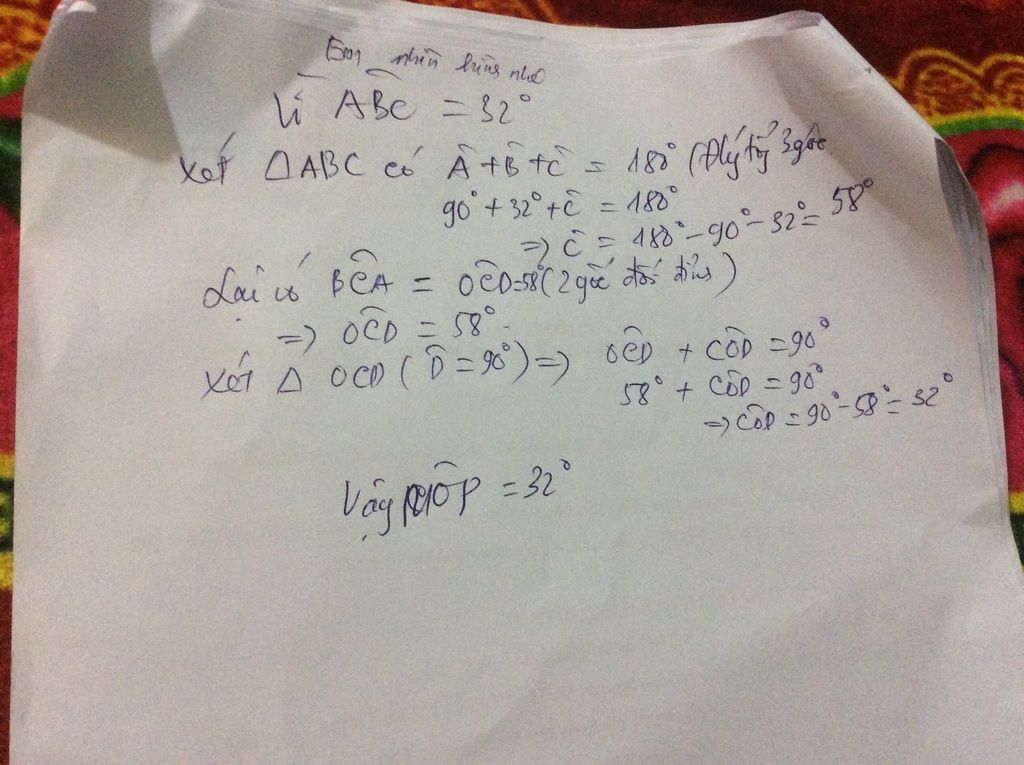 Em nhìn hình nhé
Vì ABC̑ = 32°
Xét ΔABC có Â + B̂ + Ĉ = 180° (Đlý tổng 3 góc
90° + 32° + Ĉ = 180°
=> Ĉ = 180° - 90° - 32° = 58°
Lại có BĈA = OĈD = 58° (2 góc đối đỉnh)
=> OĈD = 58°
Xét Δ OCD (D̂ = 90°) => OĈD + CÔD = 90°
58° + CÔD = 90°
=> CÔD = 90° - 58° = 32°
Vậy = 32°